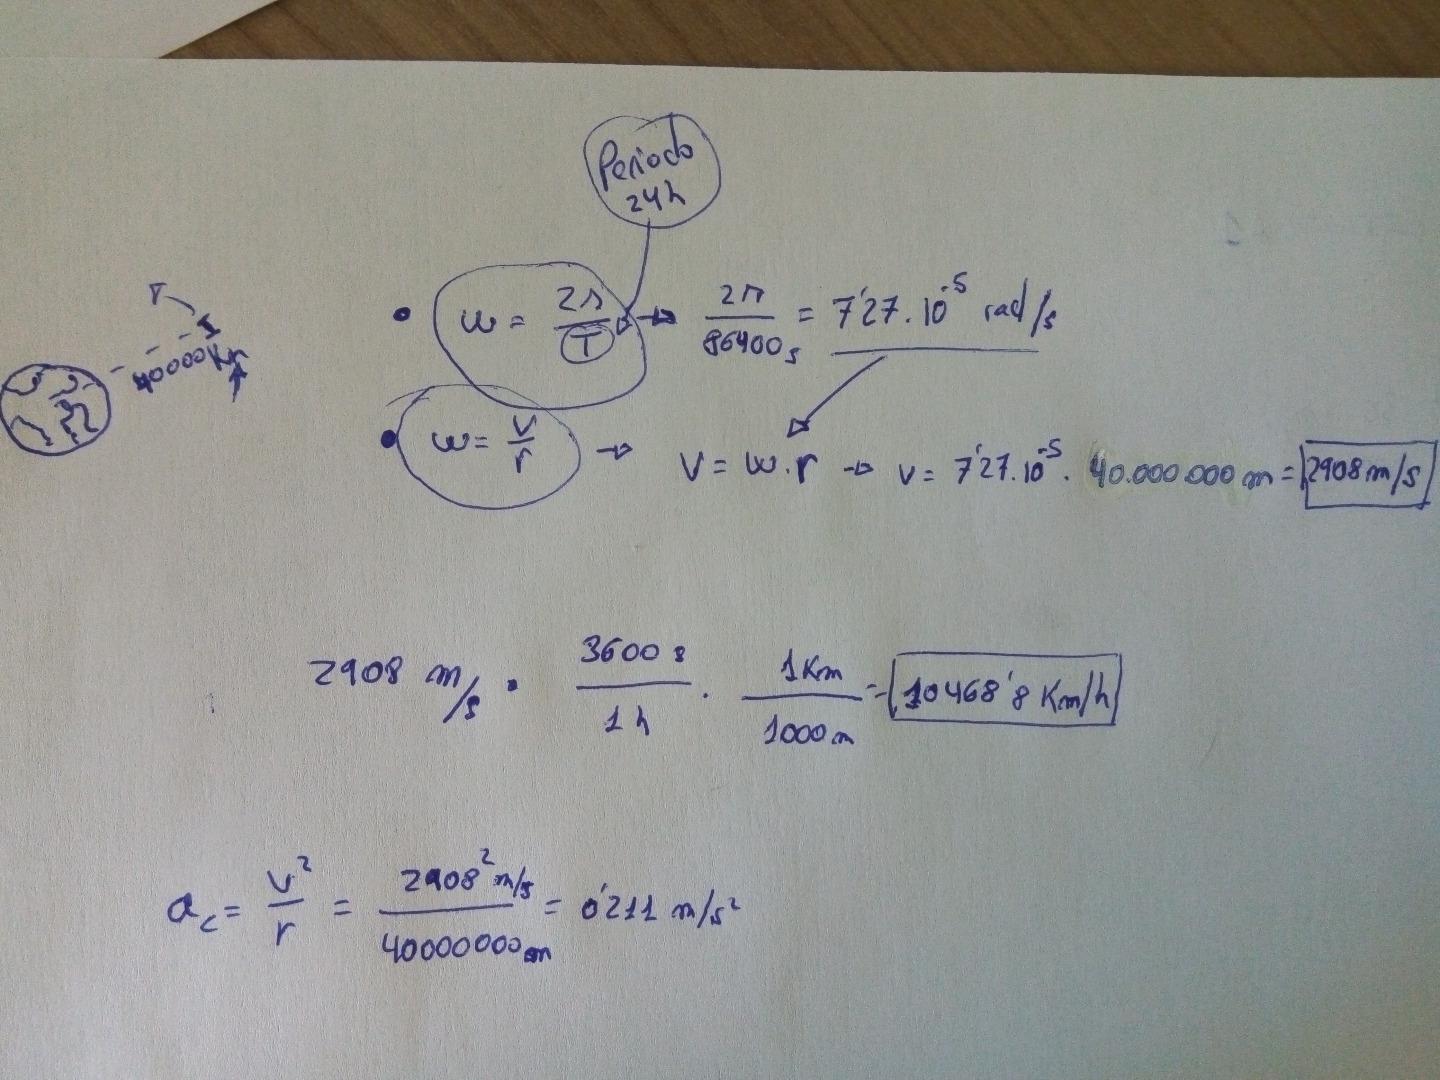 Periodo
24h
• ω = 2π/T → 2π/86400s = 7'27.10^-5 rad/s
40000Km
• ω = v/r → v = ω.r → v = 7'27.10^-5 . 40.000.000 m = 2908 m/s
2908 m/s • 3600 s/1 h . 1 Km/1000 m = 10468'8 Km/h
a_c = v²/r = 2908² m/s/40000000 m = 0'211 m/s²